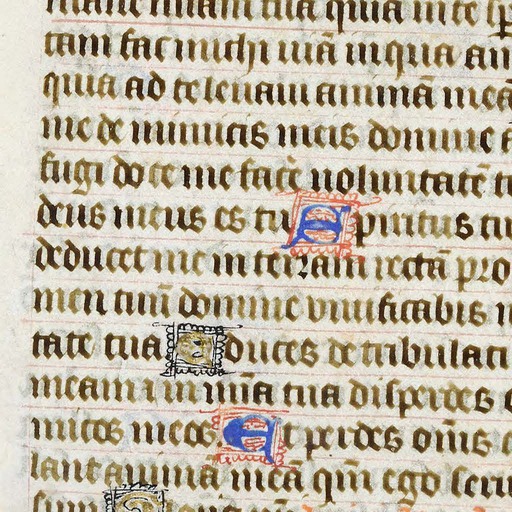 mane miam tua quia in te sp
tam fac michi uiā in qua am
quia ad te leuaui animā meā
me de inimicis meis domine a
fugi doce me facē uoluntatē tu
deus meus es tu Spiritus tu
deducet me in terram rectā pro
men tuū domine uiuificabis m
tate tua Educes de tribulati
mea in mīa tua disperdes
micos meos Et perdes om̄s
lant animā meā qm̄ ego seru
sum